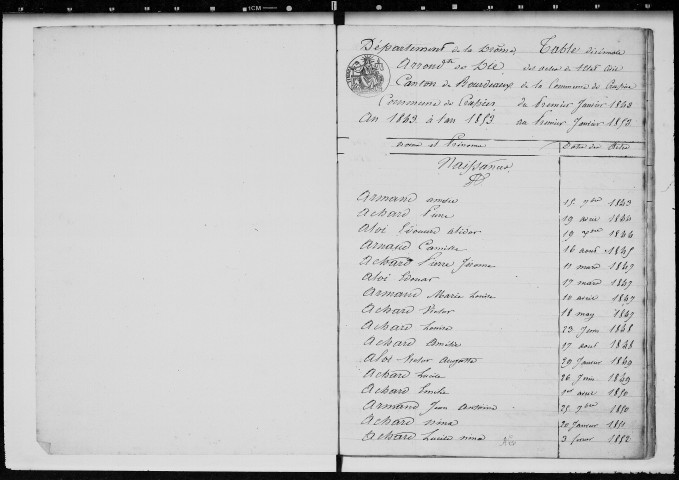 Département de la Drôme Table décennale
Arrond.t de Die des actes de l'état civil
Canton de Bourdeaux de la Commune de Crupies
Commune de Crupies du Premier Janvier 1843
An 1843 à l'an 1853 au Premier Janvier 1853
noms et Prénoms Dates des Actes
Naissances
Armand 15 7bre 1843
Achard 19 avril 1844
Aloi Edouard 19 1844
Arnaud Camille 16 août 1845
Achard Pierre Jérome 11 mars 1847
Aloi 17 mars 1847
Armand Marie Louise 10 avril 1847
Achard Victor 18 may 1847
Achard Louise 23 Juin 1848
Achard 17 août 1848
Aloi Victor Auguste 29 Janvier 1849
Achard Lucie 26 Juin 1849
Achard avril 1850
Armand Jean Antoine 25 7bre 1850
Achard nina 20 Janvier 1851
Achard Lucie nina 3 fevrier 1852